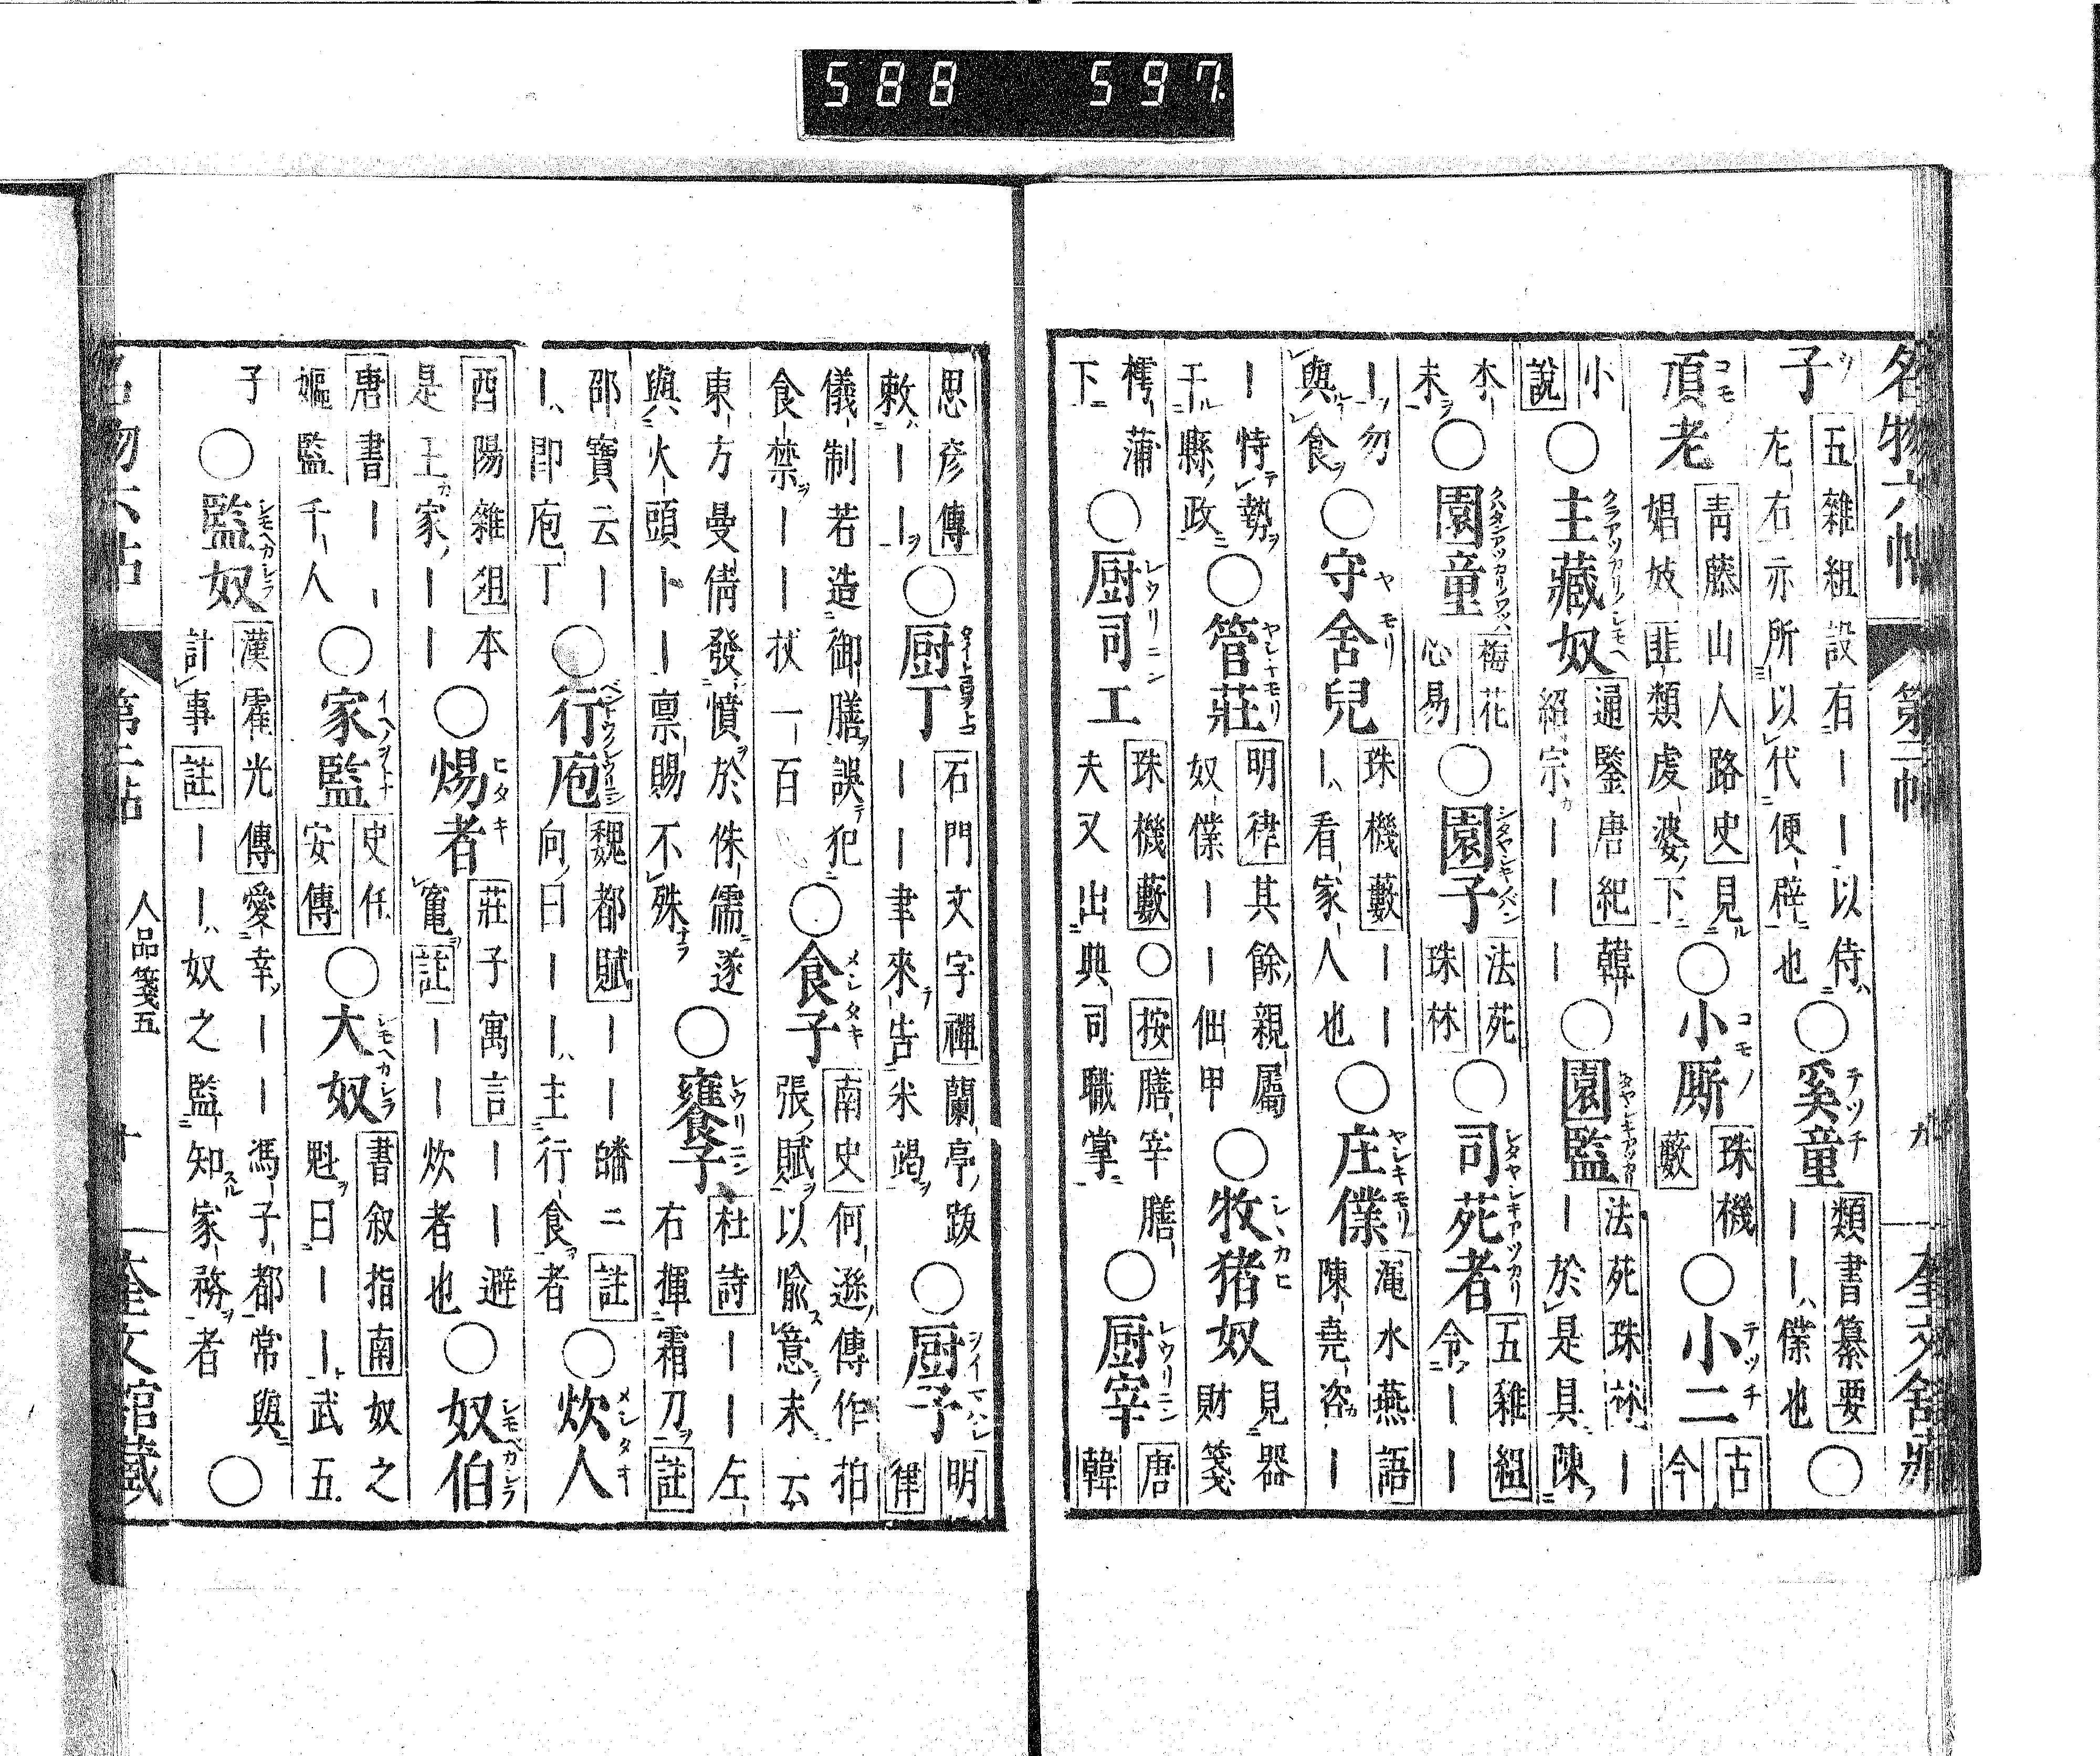 588 597
名物六帖 第二帖 九 奎文舘藏
子 五雜組設有——以侍
左右亦所以代便辟也 ○奚童 類書纂要——僕也 ○
頂老 青藤山人路史見娼妓韭類虔婆下 ○小厮 珠機藪 ○小二 古今
小說 ○主藏奴 通鑒唐紀韓紹宗——— ○園監 法苑珠林——於是具陳
木未 ○園童 梅花心易 ○園子 法苑珠林 ○司苑者 五雜組令——
—勿與食 ○守舍兒 珠機藪———看家人也 ○庄僕 澠水燕語陳堯咨—
—恃勢干縣政 ○管莊 明律其餘親屬奴僕——佃甲 ○牧猪奴 見器財箋
樗蒲下 ○厨司工 珠機藪○按膳宰膳夫又出典司職掌 ○厨宰 唐韓
思彦傳敕——— ○厨丁 石門文字禪蘭亭跋——聿來告米竭 ○厨子 明律
儀制若造御膳誤犯食禁——杖一百 ○食子 南史何遜傳作拍張賦以喻意末云
東方曼倩發憤於侏儒遂與火頭食子稟賜不殊 ○饔子 杜詩——左右揮霜刀註
邵寶云——即庖丁 ○行庖 魏都賦——皤々註向曰——主行食者 ○炊人
酉陽雜俎本是王家—— ○煬者 莊子寓言——避竈註——炊者也 ○奴伯
唐書——嫗監千人 ○家監 史任安傳 ○大奴 書叙指南奴之魁曰——武五
子 ○監奴 漢霍光傳愛幸——馮子都常與計事註——奴之監知家務者 ○
名物六帖 第二帖 人品箋五 十 奎文舘藏